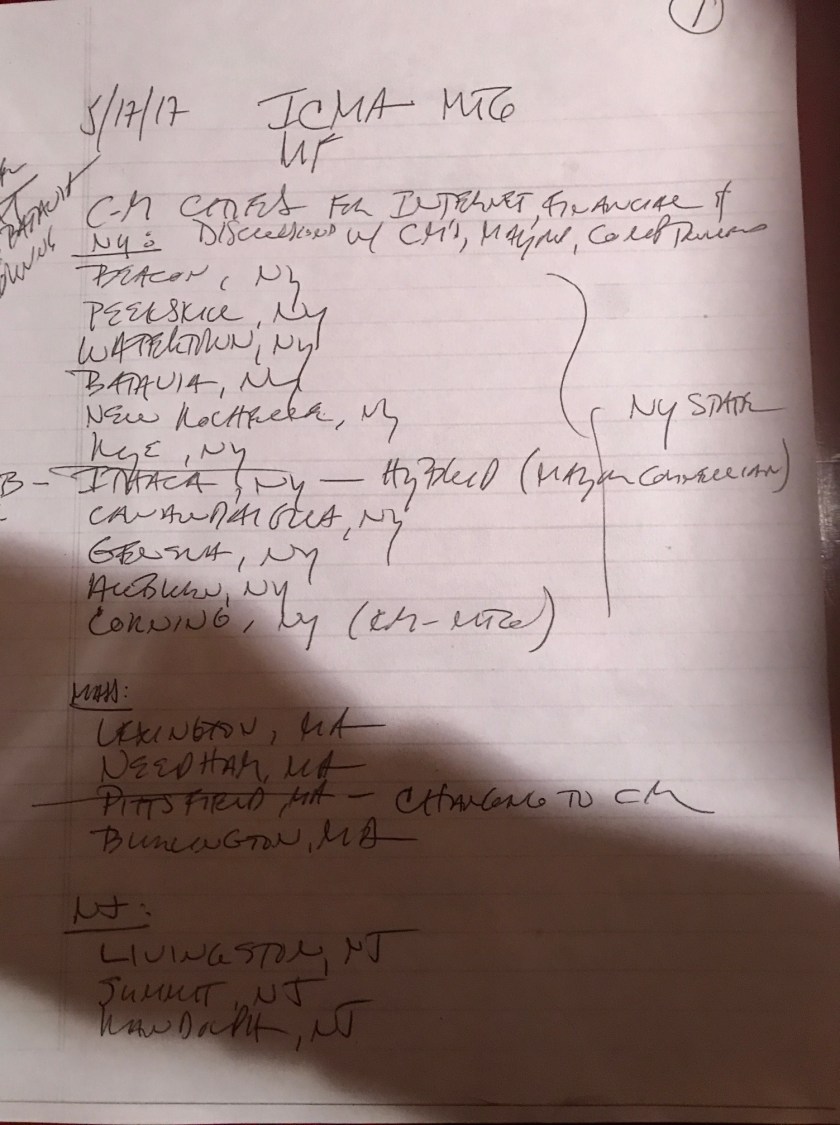 1
5/17/17 ICMA MTG
C-M CITIES FOR INTERNET, FINANCIAL &
NY: DISCUSSIONS W/ CM'S, MAYORS,
BEACON, NY
PEEKSKILL, NY
WATERTOWN, NY
BATAVIA, NY
NEW ROCHELLE, NY
RYE, NY
NY STATE
B - ITHACA, NY — HYBRID (MAYOR COUNCILMAN)
CANANDAIGUA, NY
GENEVA, NY
AUBURN, NY
CORNING, NY (CM-MTG)
BATAVIA
MASS:
LEXINGTON, MA
NEEDHAM, MA
PITTSFIELD, MA - CHANGING TO CM
BURLINGTON, MA
NJ:
LIVINGSTON, NJ
SUMMIT, NJ
RANDOLPH, NJ